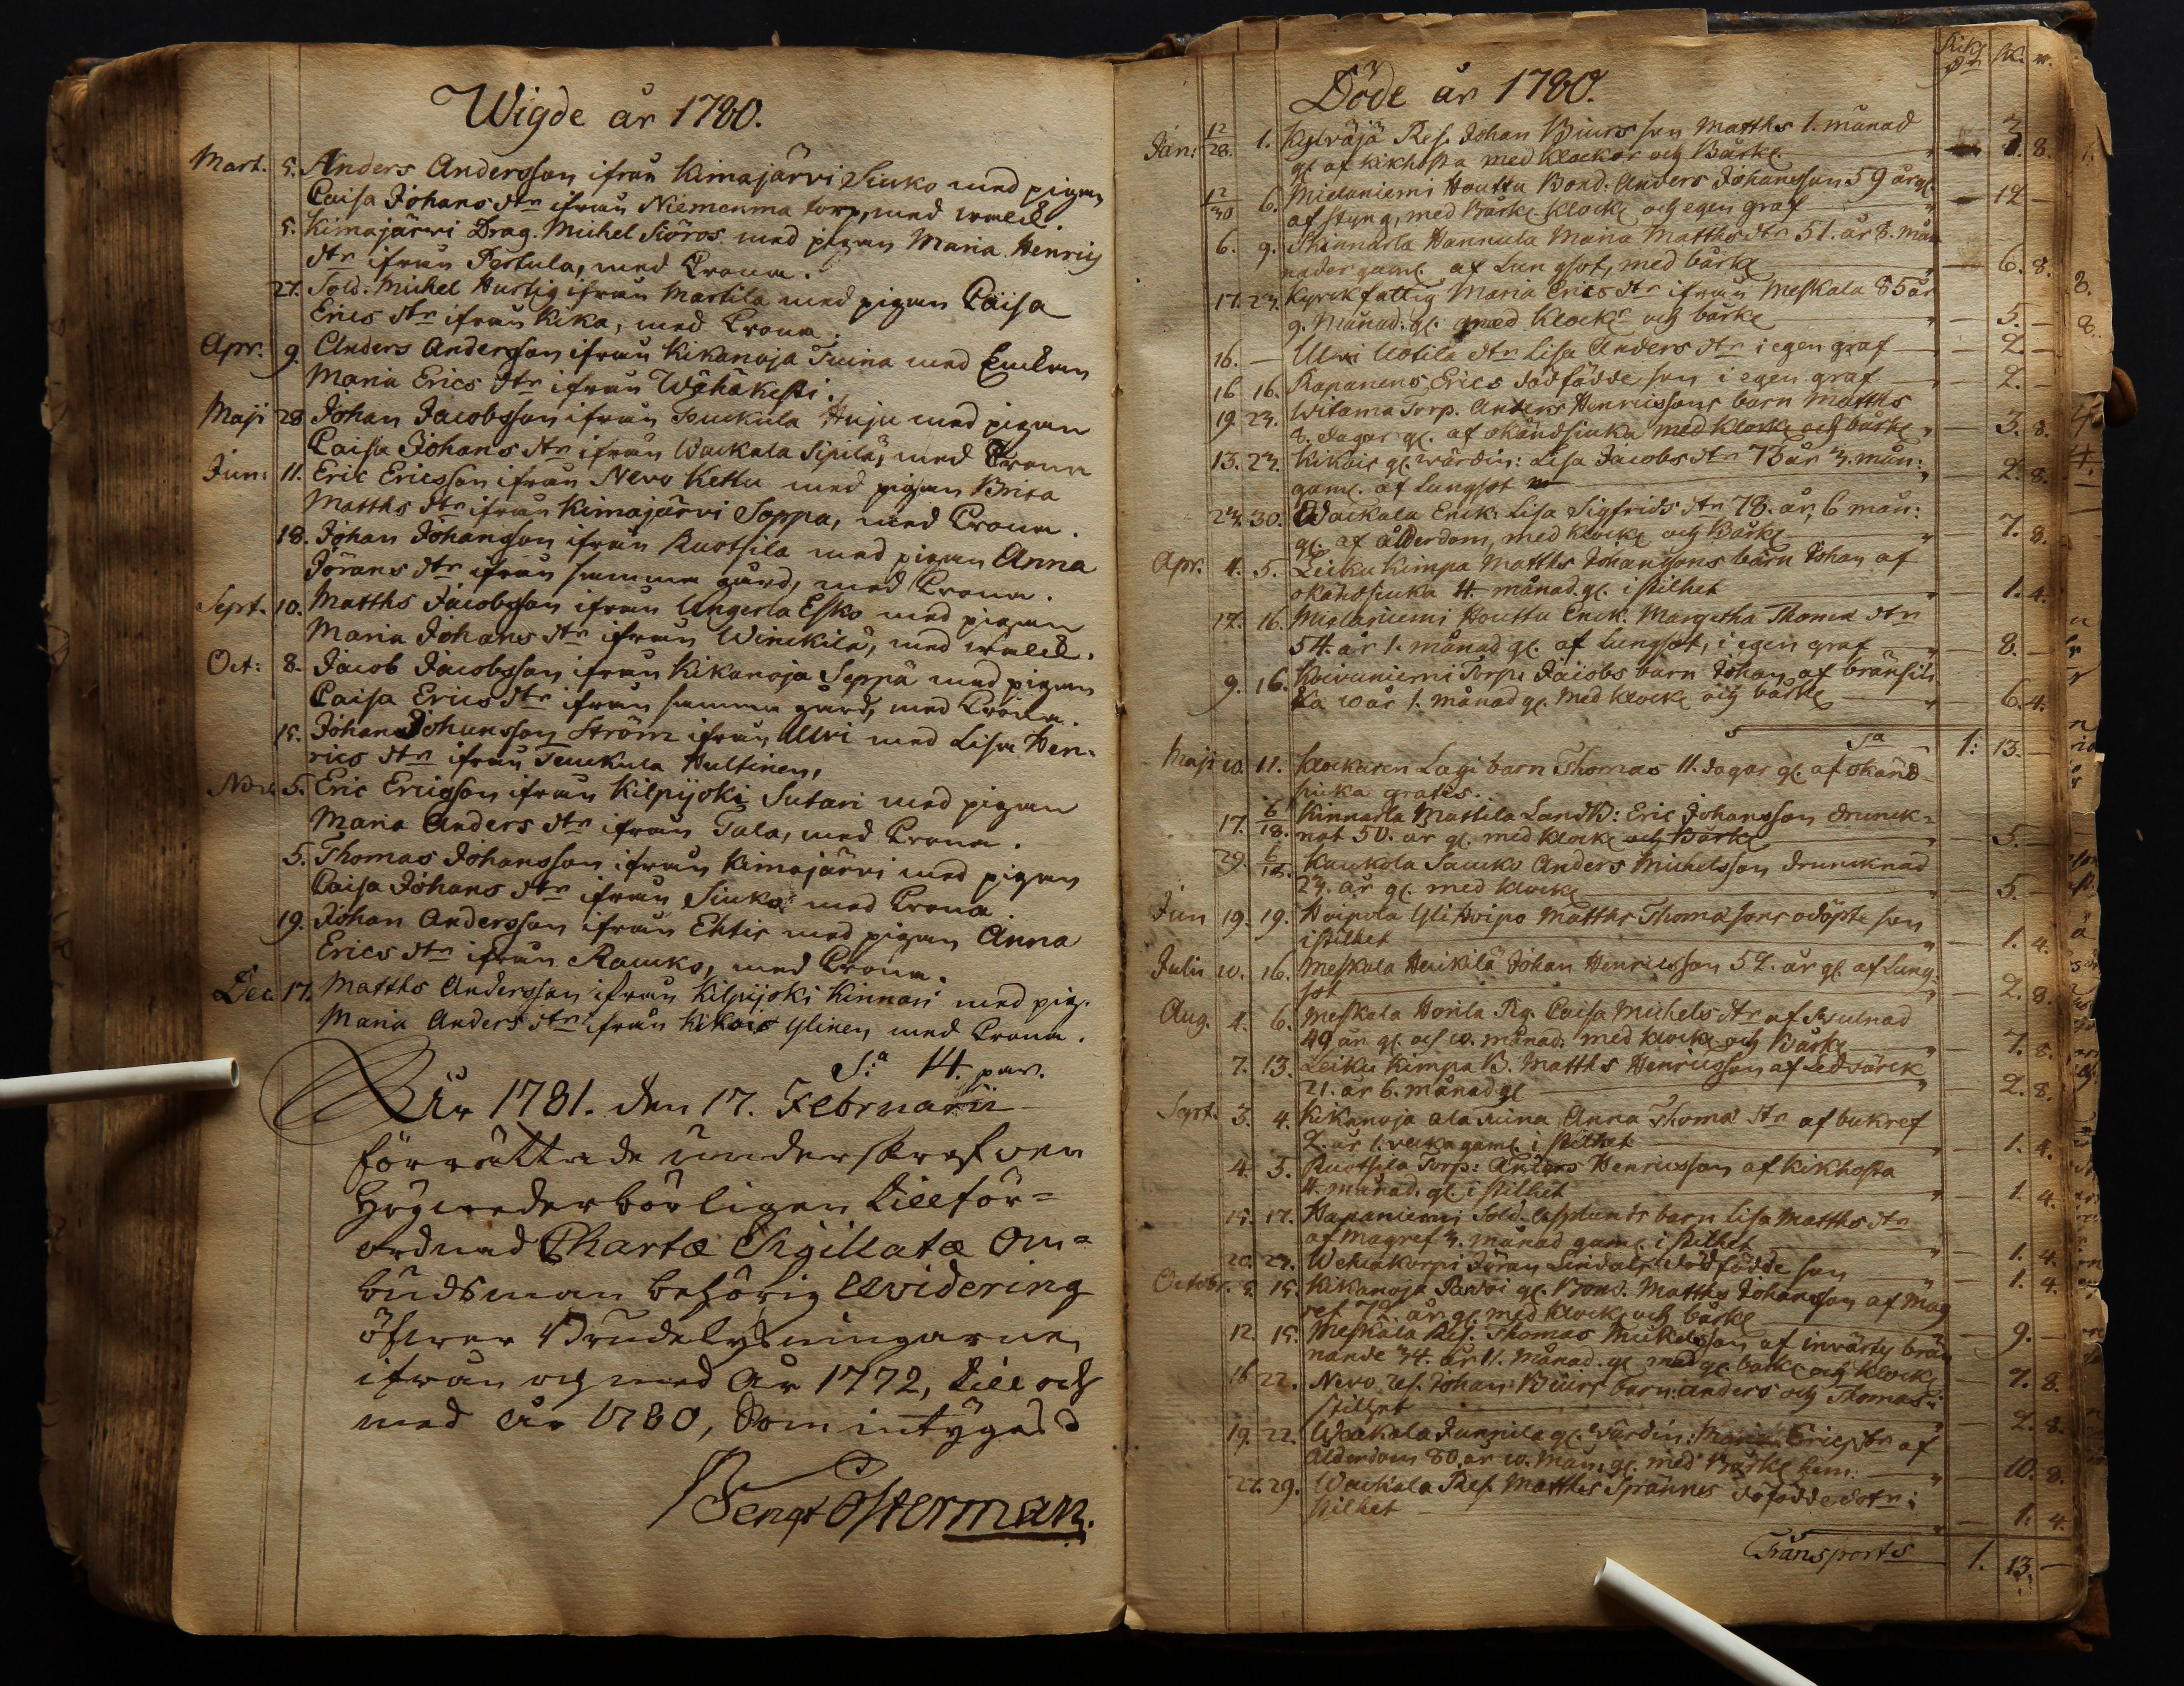 Wigde år 1780.
Mart. 5. Anders Andersson ifrån Kimajärvi Siuko med pigan
Caisa Johans dtr ifrån Niemenma torp, med
5. Kimajärwi Drag. Michel Siöros med pigan Maria Henrics
dtr ifrån Pertula, med Crona.
27. Sold. Michel Hurtig ifrån Martila med pigan Caisa
Erics dtr ifrån Kika, med Crona.
Apr. 9. Anders Andersson ifrån Kikanoja Tuina med Enkan
Maria Erics dtr ifrån Wähäkesti.
Maji 28 Johan Jacobsson ifrån Teuckula Huju med pigan
Caisa Johans dtr ifrån Wackala Sipilä, med Crona
Jun: 11. Eric Ericsson ifrån Nevo Kettu med pigan Brita
Matths dtr ifrån Kimajärvi Soppa, med Crona.
18. Johan Johansson ifrån Ruotsila med pigan Anna
Jörans dtr ifrån samma gård, med Crona.
Sept. 10. Matths Jacobsson ifrån Ungerla Esko med pigan
Maria Johans dtr ifrån Winckilä, med
Oct: 8. Jacob Jacobsson ifrån Kikanoja Seppä med pigan
Caisa Erics dtr ifrån samma gård, med Crona.
15. Johan Johansson Ström ifrån Ulvi med Lisa Hen-
rics dtr ifrån Teuckula Hultinen,
Nov. 5. Eric Ericsson ifrån Kilpijoki Sutari med pigan
Maria Anders dtr ifrån Tala, med Crona.
5. Thomas Johansson ifrån Kimajärvi med pigan
Caisa Johans dtr ifrån Siuko med Crona.
19. Johan Andersson ifrån Ehtis med pigan Anna
Erics dtr ifrån Rauko, med Crona.
Dec. 17. Matths Andersson ifrån Kilpijoki Kinnari med pig.
Maria Anders dtr ifrån Kikois Ylinen, med Crona.
S:a 14. par.
År 1781. den 17. Februarii
förrättade underskrefven
Högwederbörligen tillför=
ordnad Chartæ Sigillatæ Om=
budsman behörig Ewidering
öfwer Brudelysningarne
ifrån och med År 1772, till och
med År 1780, Som intygas
Bengt Osterman.
Döde år 1780.
Riksd. sk. r.
Jan: 12/28. 1. Kylväjä Res. Johan Biurs son Matths 1. månad
gl. af kikhosta med klockor och Bårkl. 3. 8.
12/30 6. Mielaniemi Houttu Bond: Anders Johansson 59 år gl.
af styng, med Bårkl. klock och egen graf 12 —
6. 9. Kinnarla Hannula Maria Matths dtr 51. år 8. må-
nader gaml. af Lungsot, med bårkl 6. 8.
17. 23. Kyrckfattig Maria Erics dtr ifrån Meskala 85 år
9. Månad. gl. med klock och bårkl 5. —
16. — Ulvi Uotila dtr Lisa Anders dtr i egen graf 2. —
16 16. Rapanens Erics dödfödde son i egen graf 2. —
19. 23. Witama Torp. Anders Henricssons barn Matths
8. dagar gl. af okändsiuka med klock och bårkl 3. 8.
13. 23. Kikois gl. wärdin: Lisa Jacobs dtr 75 år 3. mån:
gaml. af Lungsot 2. 8.
23. 30. Wackala Enck: Lisa Sigfrids dtr 78. år, 6 mån:
gl. af ålderdom, med klock och Bårkl 7. 8.
Apr. 4. 5. Leiku Kimpa Matths Johanssons barn Johan af
okändsiuka 4. månad. gl. i stilhet 1. 4.
12. 16. Mielaniemi Houttu Enck. Margetha Thomæ dtr
54. år 1. månad gl. af Lungsot, i egen graf 8. —
9. 16. Koivuniemi Torp. Jacobs barn Johan af bränsiu
ka 10 år 1. månad gl. med klock och bårkl 6. 4.
Sa 1: 13. —
Maji 10. 11. klockaren Lagi barn Thomas 11. dagar gl. af okänd
siuka gratis.
17. 6/18. Kinnarla Mattila Landb: Eric Johansson drunck-
nat 50. år gl. med klock och Bårkl 5. —
29. 6/18. Kaukola Sauko Anders Michelsson druncknad
23. år gl. med klock 5. —
Jun 19. 19. Hoipola Yli Hoipo Matths Thomæ sons odöpte son
i stilhet 1. 4.
Julii 10. 16. Meskala Heikilä Johan Henricsson 52. år gl. af Lung-
sot 2. 8.
Aug. 4. 6. Meskala Horila Pig. Caisa Michels dtr af Svulnad
49 år gl. och 10. månad. med klock och Bårkl 7. 8.
7. 13. Leiku Kimpa B. Matths Henricsson af Ledvärck
21. år 6. månad gl 2. 8.
Sept. 3. 4. Kikanoja Ala Tuina Anna Thomæ dtr af bukref
2. år 1. vecka gaml. i stilhet 1. 4.
4. 5. Ruotsila Torp: Anders Henricsson af kikhosta
4. månad. gl. i stilhet 1. 4.
15. 17. Hapaniemi Sold. Asplunds barn Lisa Matths dtr
af magref 3. månad gaml. i stilhet 1. 4.
20. 24. Wehäkorpi Jöran Lindals dödfödde son 1. 4.
Octobr. 8. 15. Kikanoja Parvoi gl. Bond. Matths Johansson af Mag
ref 72. år gl. med klock och bårkl 9. —
12. 15. Meskala Res. Thomas Mickelsson af invärtes brän
nande 34. år 11. Månad. gl med gl. bårkl och klock 7. 8.
16 22. Nevo Res. Johan Biurs barn Anders och Thomas i
stilhet 2. 8.
19. 22. Wackala Junnila gl. Värdin: Maria Erics dtr af
Ålderdom 80 år 10. Mån: gl. med Bårkl hem: 10. 8.
27. 29. Wackala Res. Matths Sprännes döfödde dotr i
stilhet 1. 4.
Transport 1. 13. —